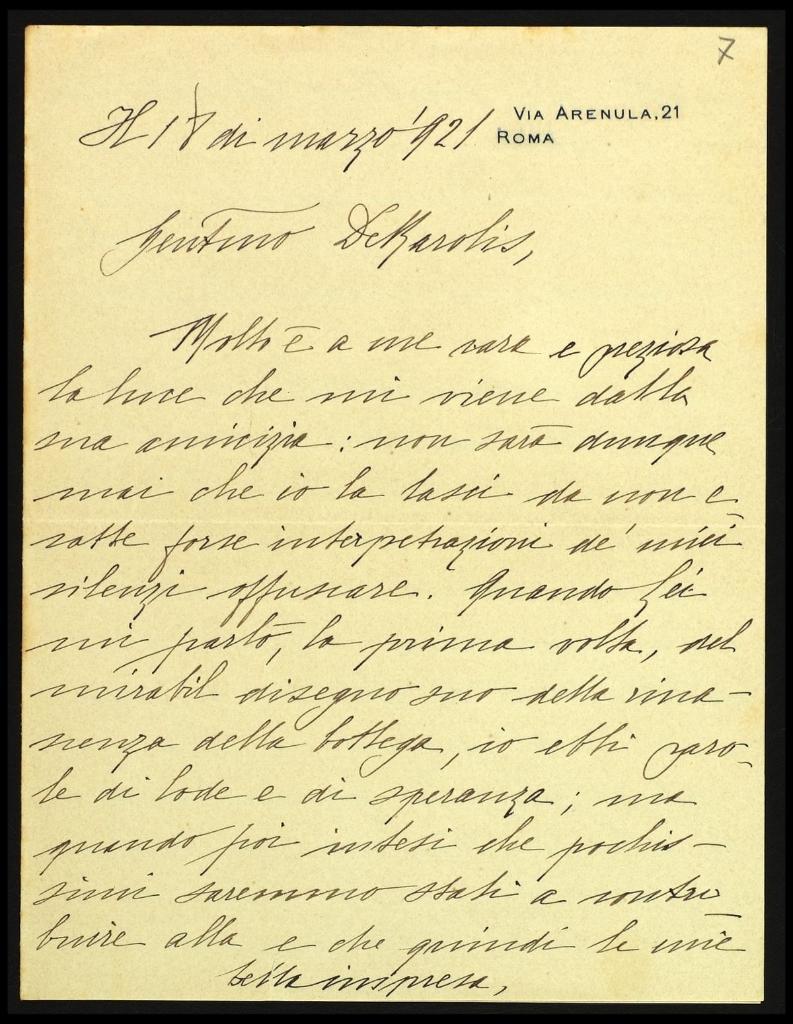 7
Il 18 di marzo '921
VIA ARENULA, 21
ROMA
Gentmo DeKarolis,
Molto è a me cara e preziosa
la luce che mi viene dalla
sua amicizia: non sarà dunque
mai che io la lasci da non e-
satte forse interpetrazioni de' miei
silenzi offuscare. Quando Lei
mi parlò, la prima volta, del
mirabil disegno suo della rina-
scenza della bottega, io ebbi paro-
le di lode e di speranza; ma
quando poi intesi che pochis-
simi saremmo stati a contri
buire alla e che quindi le mie
bella impresa,